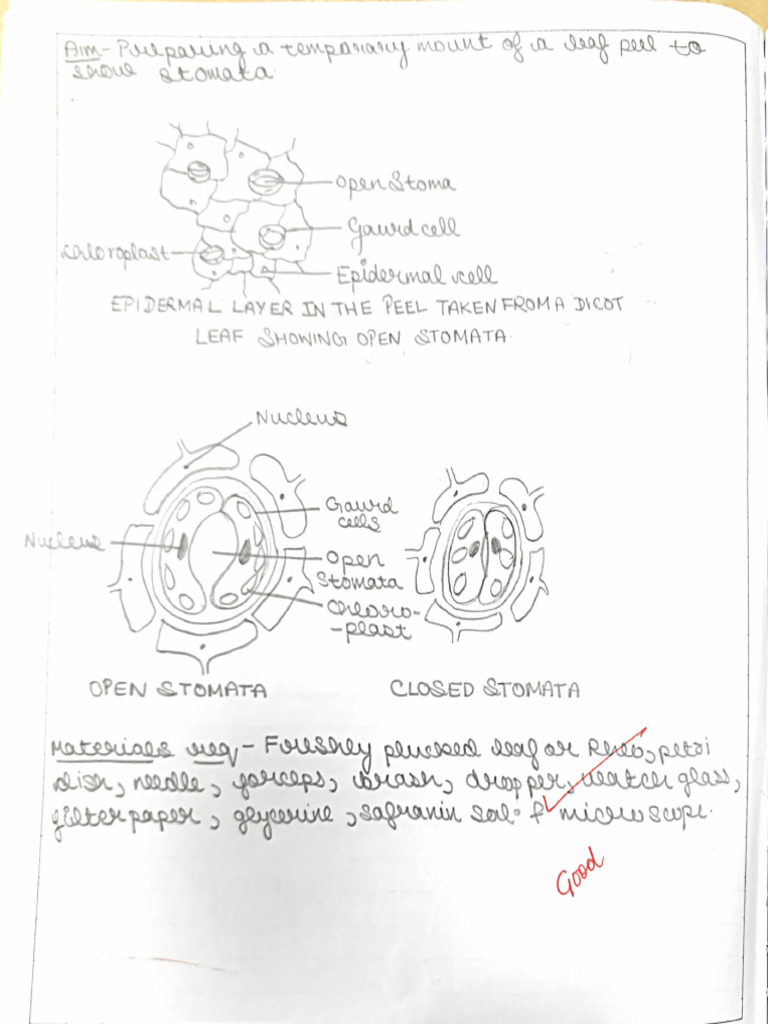 Aim- Preparing a temporary mount of a leaf peel to
show stomata
Open Stoma
Gaurd cell
Chloroplast
Epidermal cell
EPIDERMAL LAYER IN THE PEEL TAKEN FROM A DICOT
LEAF SHOWING OPEN STOMATA
Nucleus
Gaurd
cells
Nucleus
Open
Stomata
Chloro-
-plast
OPEN STOMATA
CLOSED STOMATA
Materials req- Freshly plucked leaf or Rheo, petri
dish, needle, forceps, brash, dropper, watch glass,
filter paper, glycerine, safranin sol. & microscope.
Good